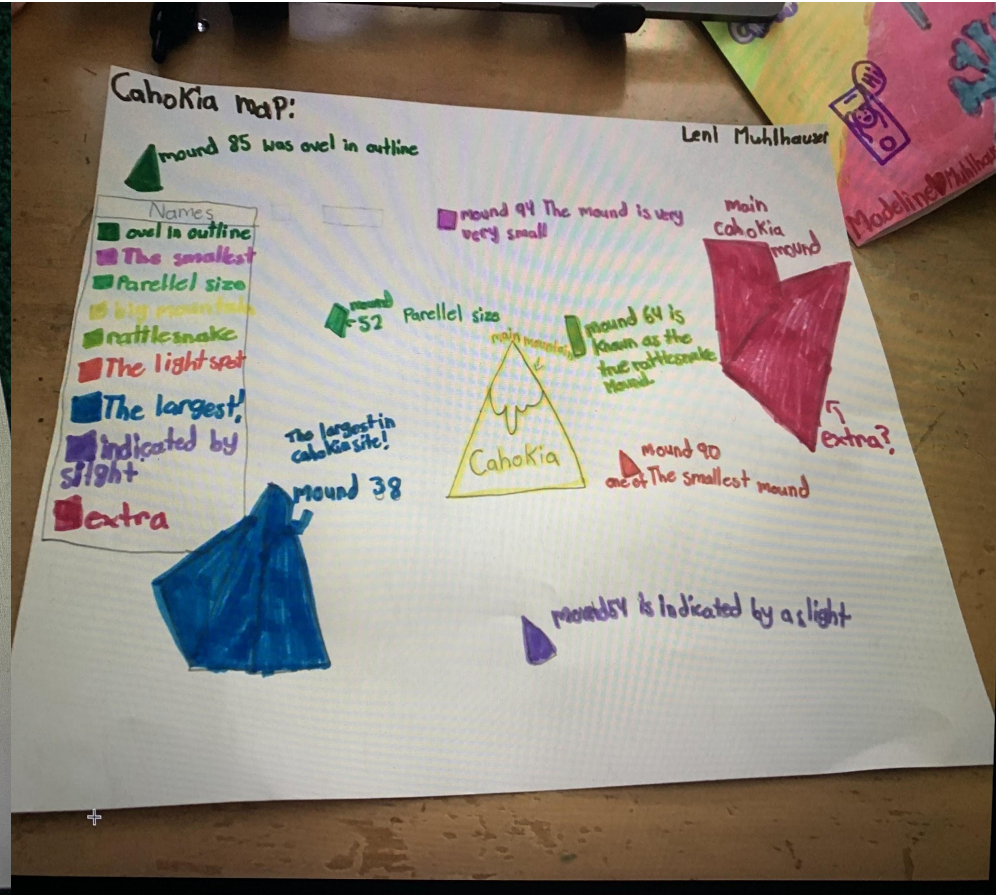 Cahokia map:
Leni Muhlhauser
mound 85 was ovel in outline
Names
ovel in outline
The smallest
Parellel size
big mountain
rattlesnake
The light spot
The largest!
indicated by
slight
extra
mound 94 The mound is very
very small
main
cahokia
mound
extra?
mound
52
Parellel size
main mountain
Cahokia
mound 64 is
Known as the
true rattlesnake
Mound.
Mound 90
one of The smallest mound
The largest in
cahokia site!
Mound 38
mound 54 is indicated by a slight
Hi
Madeline Muhlhau